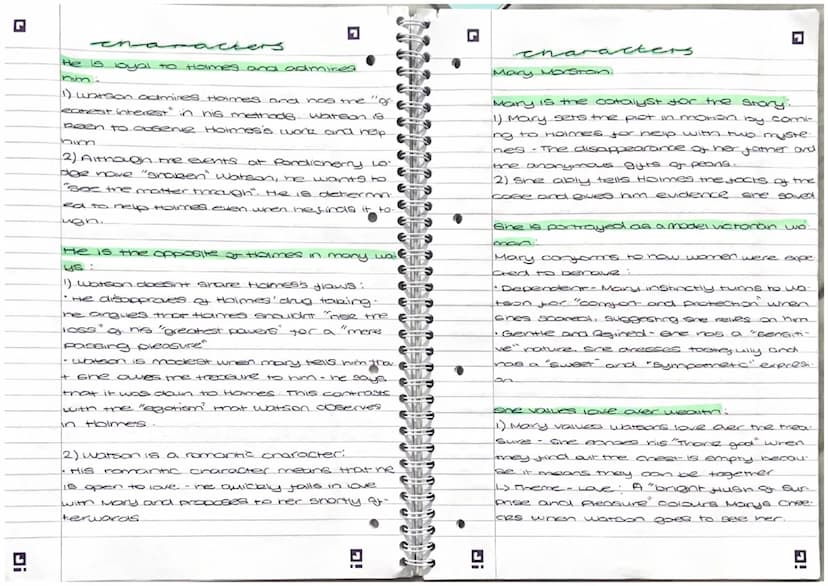 characters
He is loyal to Holmes and admires
him.
1) Watson admires Holmes and has the "gr
eatest interest" in his methods. Watson is
keen to observe Holmes's work and help
him
2) Although the events at Pondicherry Lo
dge have "shaken" Watson, he wants to
"see the matter through". He is determin
ed to help Holmes even when he finds it to
ugh.
He is the opposite of Holmes in many wa
ys:
1) Watson doesnt share Holmes's flaws:
• He disapproves of Holmes' drug taking-
he argues that Holmes shouldnt "risk the
loss" of his "greatest powers" for a "mere
passing pleasure"
• Watson is modest when mary tells him tha
t she owes the treasure to him - he says
that it was down to Holmes. This contrasts
with the "egotism" that Watson observes
in Holmes.
2) Watson is a romantic character:
• His romantic character means that he
is open to love - he quickly falls in love
with Mary and proposes to her shortly af-
terwards
characters
Mary Morstan
Mary is the catalyst for the story.
1) Mary sets the plot in motion by comi
ng to Holmes for help with two myste
ries - The disappearance of her father and
the anonymous gifts of pearls.
2) She ably tells Holmes the facts of the
case and gives him evidence she saved
She is portrayed as a model victorian wo
man:
Mary conforms to how women were expe
cted to behave:
• Dependent - Mary instinctly turns to wa
tson for "comfort and protection" when
shes scared, suggesting she relies on him
• Gentle and Refined - she has a "sensiti
ve" nature. She dresses tastefully and
has a "sweet" and "sympathetic" expressi
on
She values love over wealth:
1) Mary values watsons love over the trea
sure - She echoes his "Thank god" when
they find out the chest is empty becau
se it means they can be together
↳ Theme - Love: A "bright flush of sur
prise and pleasure" colours Marys chee
cks when watson goes to see her.